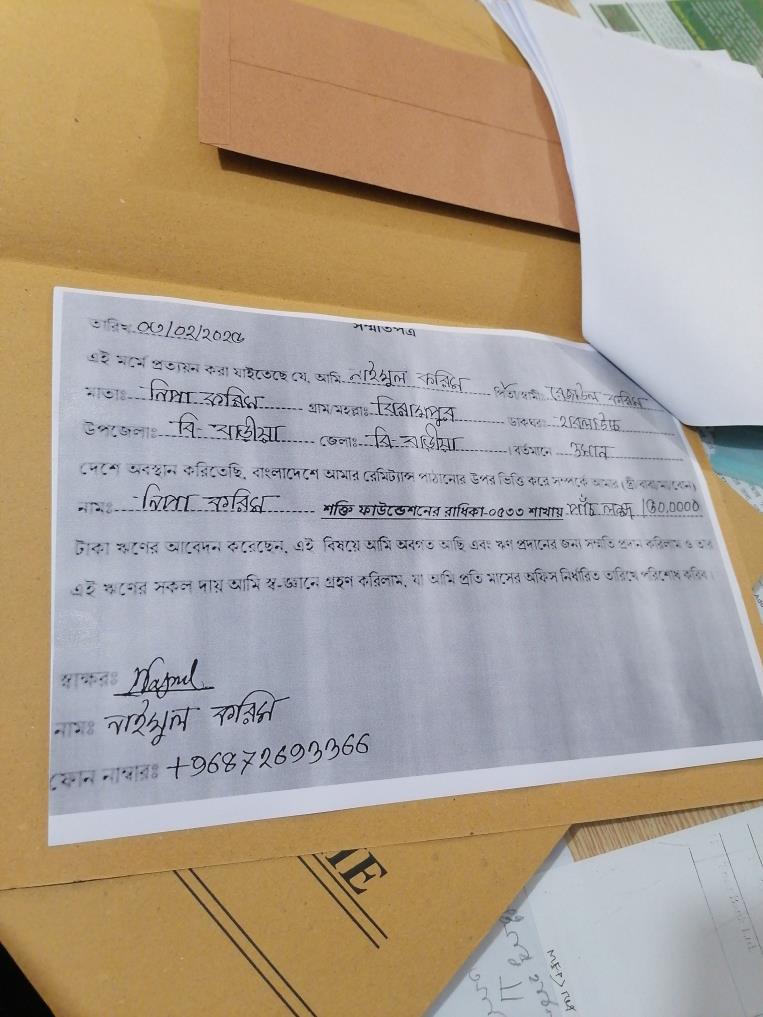 সম্মতিপত্র
তারিখ: ০৩/02/202৫
এই মর্মে প্রত্যয়ন করা যাইতেছে যে, আমি নাইমুল করিম পিতা/স্বামী: রেজাউল করিম
মাতাঃ লিপা করিম গ্রাম/মহল্লাঃ বিরামপুর ডাকঘরঃ
উপজেলাঃ বি-বাড়ীয়া জেলাঃ বি-বাড়ীয়া বর্তমানে ওমান
দেশে অবস্থান করিতেছি, বাংলাদেশে আমার রেমিট্যান্স পাঠানোর উপর ভিত্তি করে সম্পর্কে আমার (স্ত্রী/বাবা/মা/বোন)
নামঃ লিপা করিম শক্তি ফাউন্ডেশনের রাধিকা-০৫৩৩ শাখায় পাঁচ লক্ষ
টাকা ঋণের আবেদন করেছেন, এই বিষয়ে আমি অবগত আছি এবং ঋণ প্রদানের জন্য সম্মতি প্রদান করিলাম ও তার
এই ঋণের সকল দায় আমি স্ব-জ্ঞানে গ্রহণ করিলাম, যা আমি প্রতি মাসের অফিস নির্ধারিত তারিখে পরিশোধ করিব।
স্বাক্ষরঃ
নামঃ নাইমুল করিম
ফোন নাম্বারঃ +96872693366